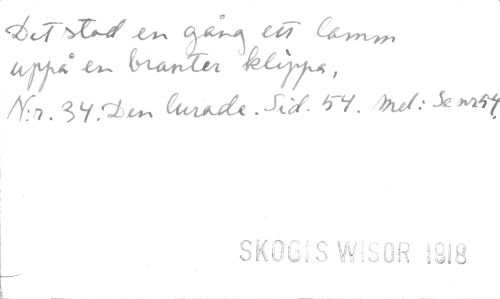 Det stod en gång ett lamm
uppå en branter klippa,
N:r. 34. Den lurade. Sid. 54. Mel: Se nr 54.
SKOGIS WISOR 1918